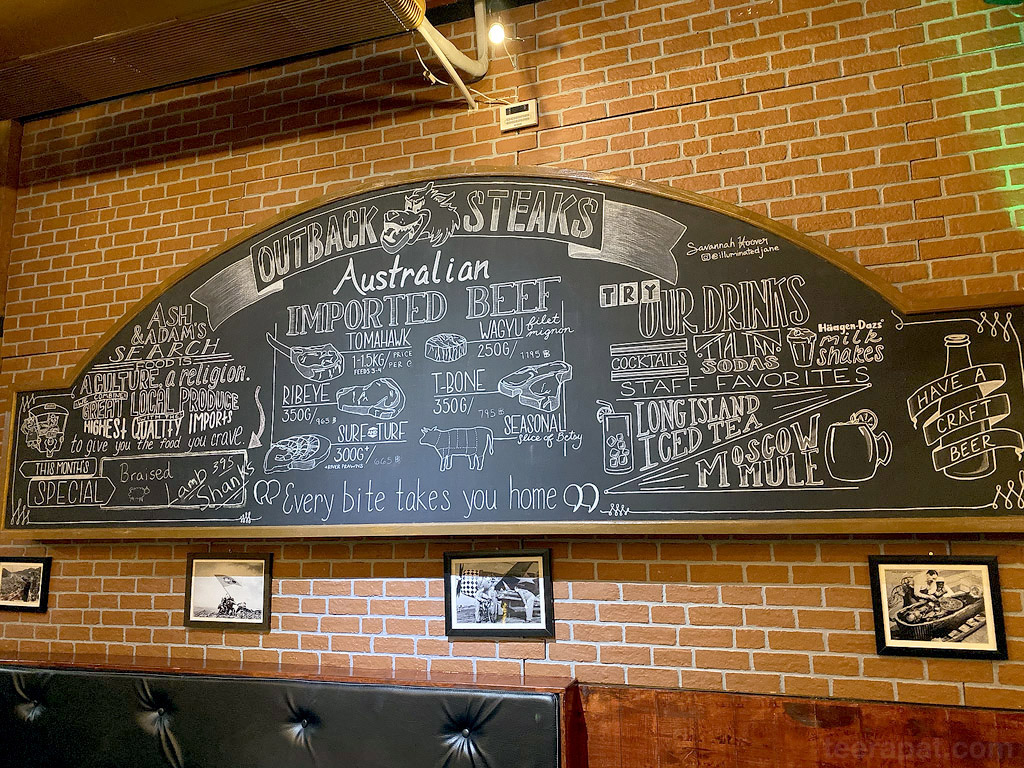 OUTBACK STEAKS
Australian
IMPORTED BEEF
TOMAHAWK
1-1.5KG/ PRICE PER G
FEEDS 3-4
WAGYU filet mignon
250G/ 1195 ฿
RIBEYE
350G/ 965 ฿
T-BONE
350G/ 795 ฿
SURF & TURF
300G+/
+RIVER PRAWNS 665 ฿
SEASONAL
slice of Betsy
Every bite takes you home
ASH
& ADAM'S
SEARCH
FOOD IS
A CULTURE, a religion.
WE COMBINE
GREAT LOCAL PRODUCE
HIGHEST QUALITY IMPORTS
to give you the food you crave.
THIS MONTH'S
SPECIAL
Braised
Lamb 395
Shanks
Savannah Hoover
@illuminatedjane
TRY OUR DRINKS
COCKTAILS
ITALIAN
SODAS
Häagen-Dazs
milk
shakes
STAFF FAVORITES
LONG ISLAND
ICED TEA
MOSCOW
MULE
HAVE A
CRAFT
BEER
teerapat.com